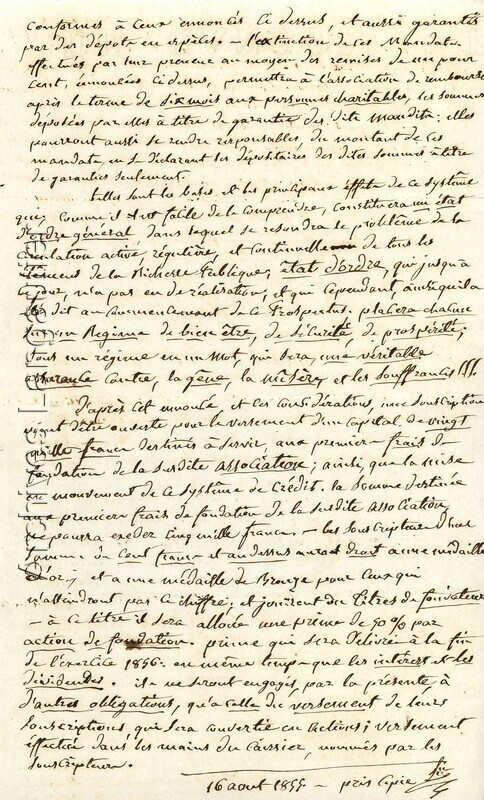 conformes à ceux énoncés ci dessus, et aussi garantis
par des dépots en espèces. — l'extinction de ces Mandats
effectuée par leur preneur au moyen des remises de un pour
cent, énoncées ci dessus, permettra à l'association de rembourser
après le terme de dix mois aux personnes charitables, les sommes
déposées par elles à titre de garantie des dits mandats; elles
pourront aussi se rendre responsables, du montant de ces
mandats, en se déclarant les dépositaires des dites sommes à titre
de garanties seulement.
telles sont les bases, et les principaux effets de ce système
qui, comme il est facile de le comprendre, constituera un état
d'ordre général dans lequel se résoudra le problème de la
circulation active, régulière, et continuelle de tous les
éléments de la Richesse Publique; état d'ordre, qui jusqu'à
ce jour, n'a pas eu de réalisation, et qui cependant, ainsi qu'il a
été dit au commencement de ce Prospectus. placera chacun
sous un Régime de bien être, de sécurité, de prospérité;
sous un régime en un mot, qui sera, une véritable
assurance contre, la gène, la misère, et les souffrances !!!
D'après cet énoncé et ces considérations, une souscription
vient d'être ouverte pour le versement d'un capital de vingt
mille francs destinés à servir, aux premiers frais de
fondation de la susdite association; ainsi, que la mise
en mouvement de ce système de crédit. la somme destinée
aux premiers frais de fondation de la susdite association
ne pourra excéder cinq mille francs. — les souscripteurs d'une
somme de cent francs et au dessus auront droit à une médaille
d'or; et à une médaille de Bronze pour ceux qui
n'atteindront pas ce chiffre; et jouiront du titres de fondateurs
— à ce titre il sera alloué une prime de 50 % par
action de fondation. prime qui sera délivrée à la fin
de l'exercice 1856. en même temps que les intérêts et les
dividendes. ils ne seront engagés, par la présente à
d'autres obligations, qu'à celle du versement de leurs
souscriptions, qui sera convertie en actions; versement
effectué dans les mains du caissier, nommés par les
souscripteurs.
16 aout 1855 — pris copie